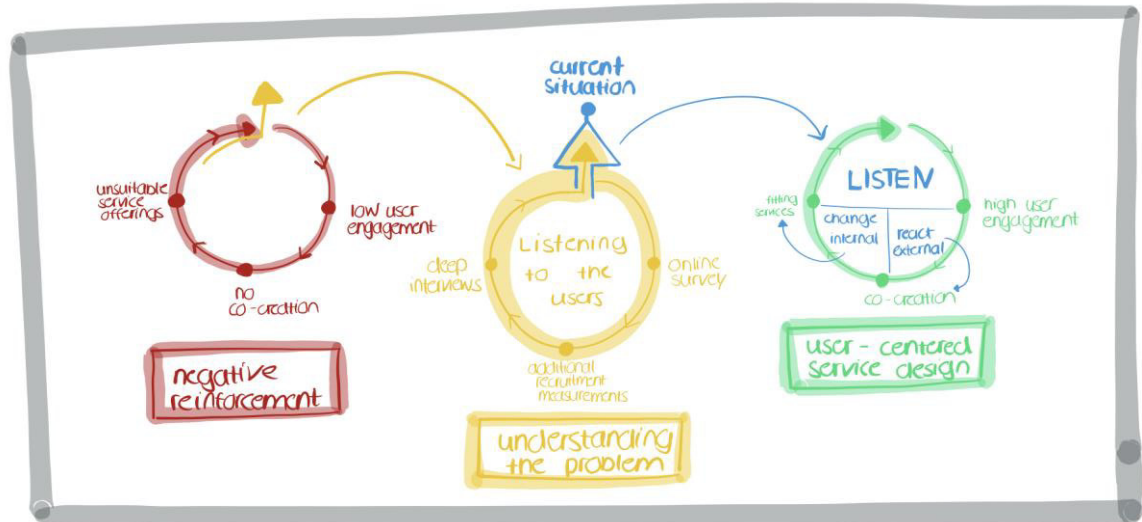 unsuitable
service
offerings
low user
engagement
no
co-creation
negative
reinforcement
current
situation
Listening
to the
users
deep
interviews
online
survey
additional
recruitment
measurements
understanding
the problem
LISTEN
change
internal
react
external
fitting
services
high user
engagement
co-creation
user-centered
service design